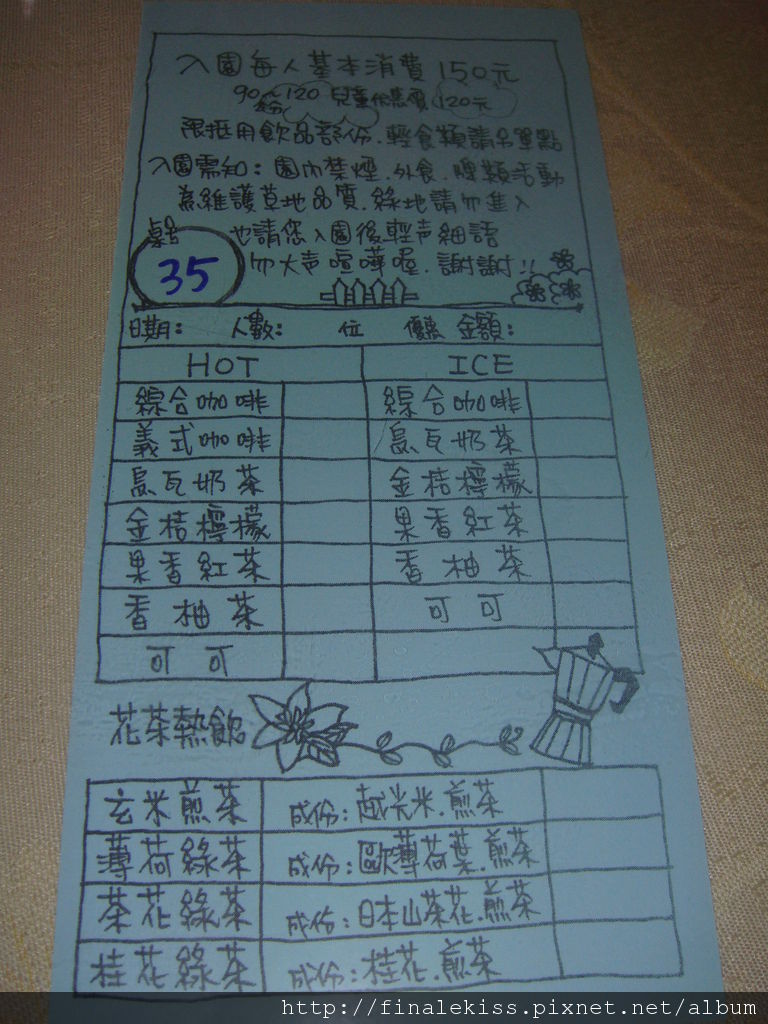 入園每人基本消費150元
90~120公分 兒童优惠價120元
限抵用飲品部份.輕食類請另單點
入園需知：園內禁煙.外食.牌類活動
為維護草地品質.綠地請勿進入
也請您入園後輕声細語
勿大声喧嘩喔.謝謝!!
桌号
35
日期： 人數： 位 優惠 金額：
HOT ICE
綜合咖啡 綜合咖啡
義式咖啡 烏瓦奶茶
烏瓦奶茶 金桔檸檬
金桔檸檬 果香紅茶
果香紅茶 香柚茶
香柚茶 可可
可可
花茶熱飲
玄米煎茶 成份：越光米.煎茶
薄荷綠茶 成份：歐薄荷葉.煎茶
茶花綠茶 成份：日本山茶花.煎茶
桂花綠茶 成份：桂花.煎茶
http://finalekiss.pixnet.net/album